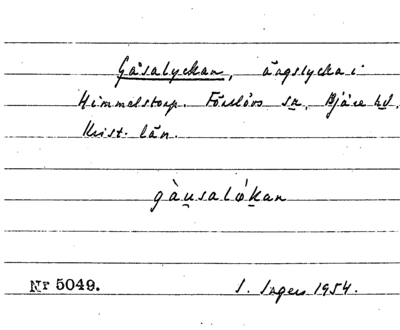 Gåsalyckan, ängslycka i
Himmelstorp. Förslövs sn. Bjäre hd.
Krist. län.
gàusalókan
Nr 5049.
I. Ingers 1954.